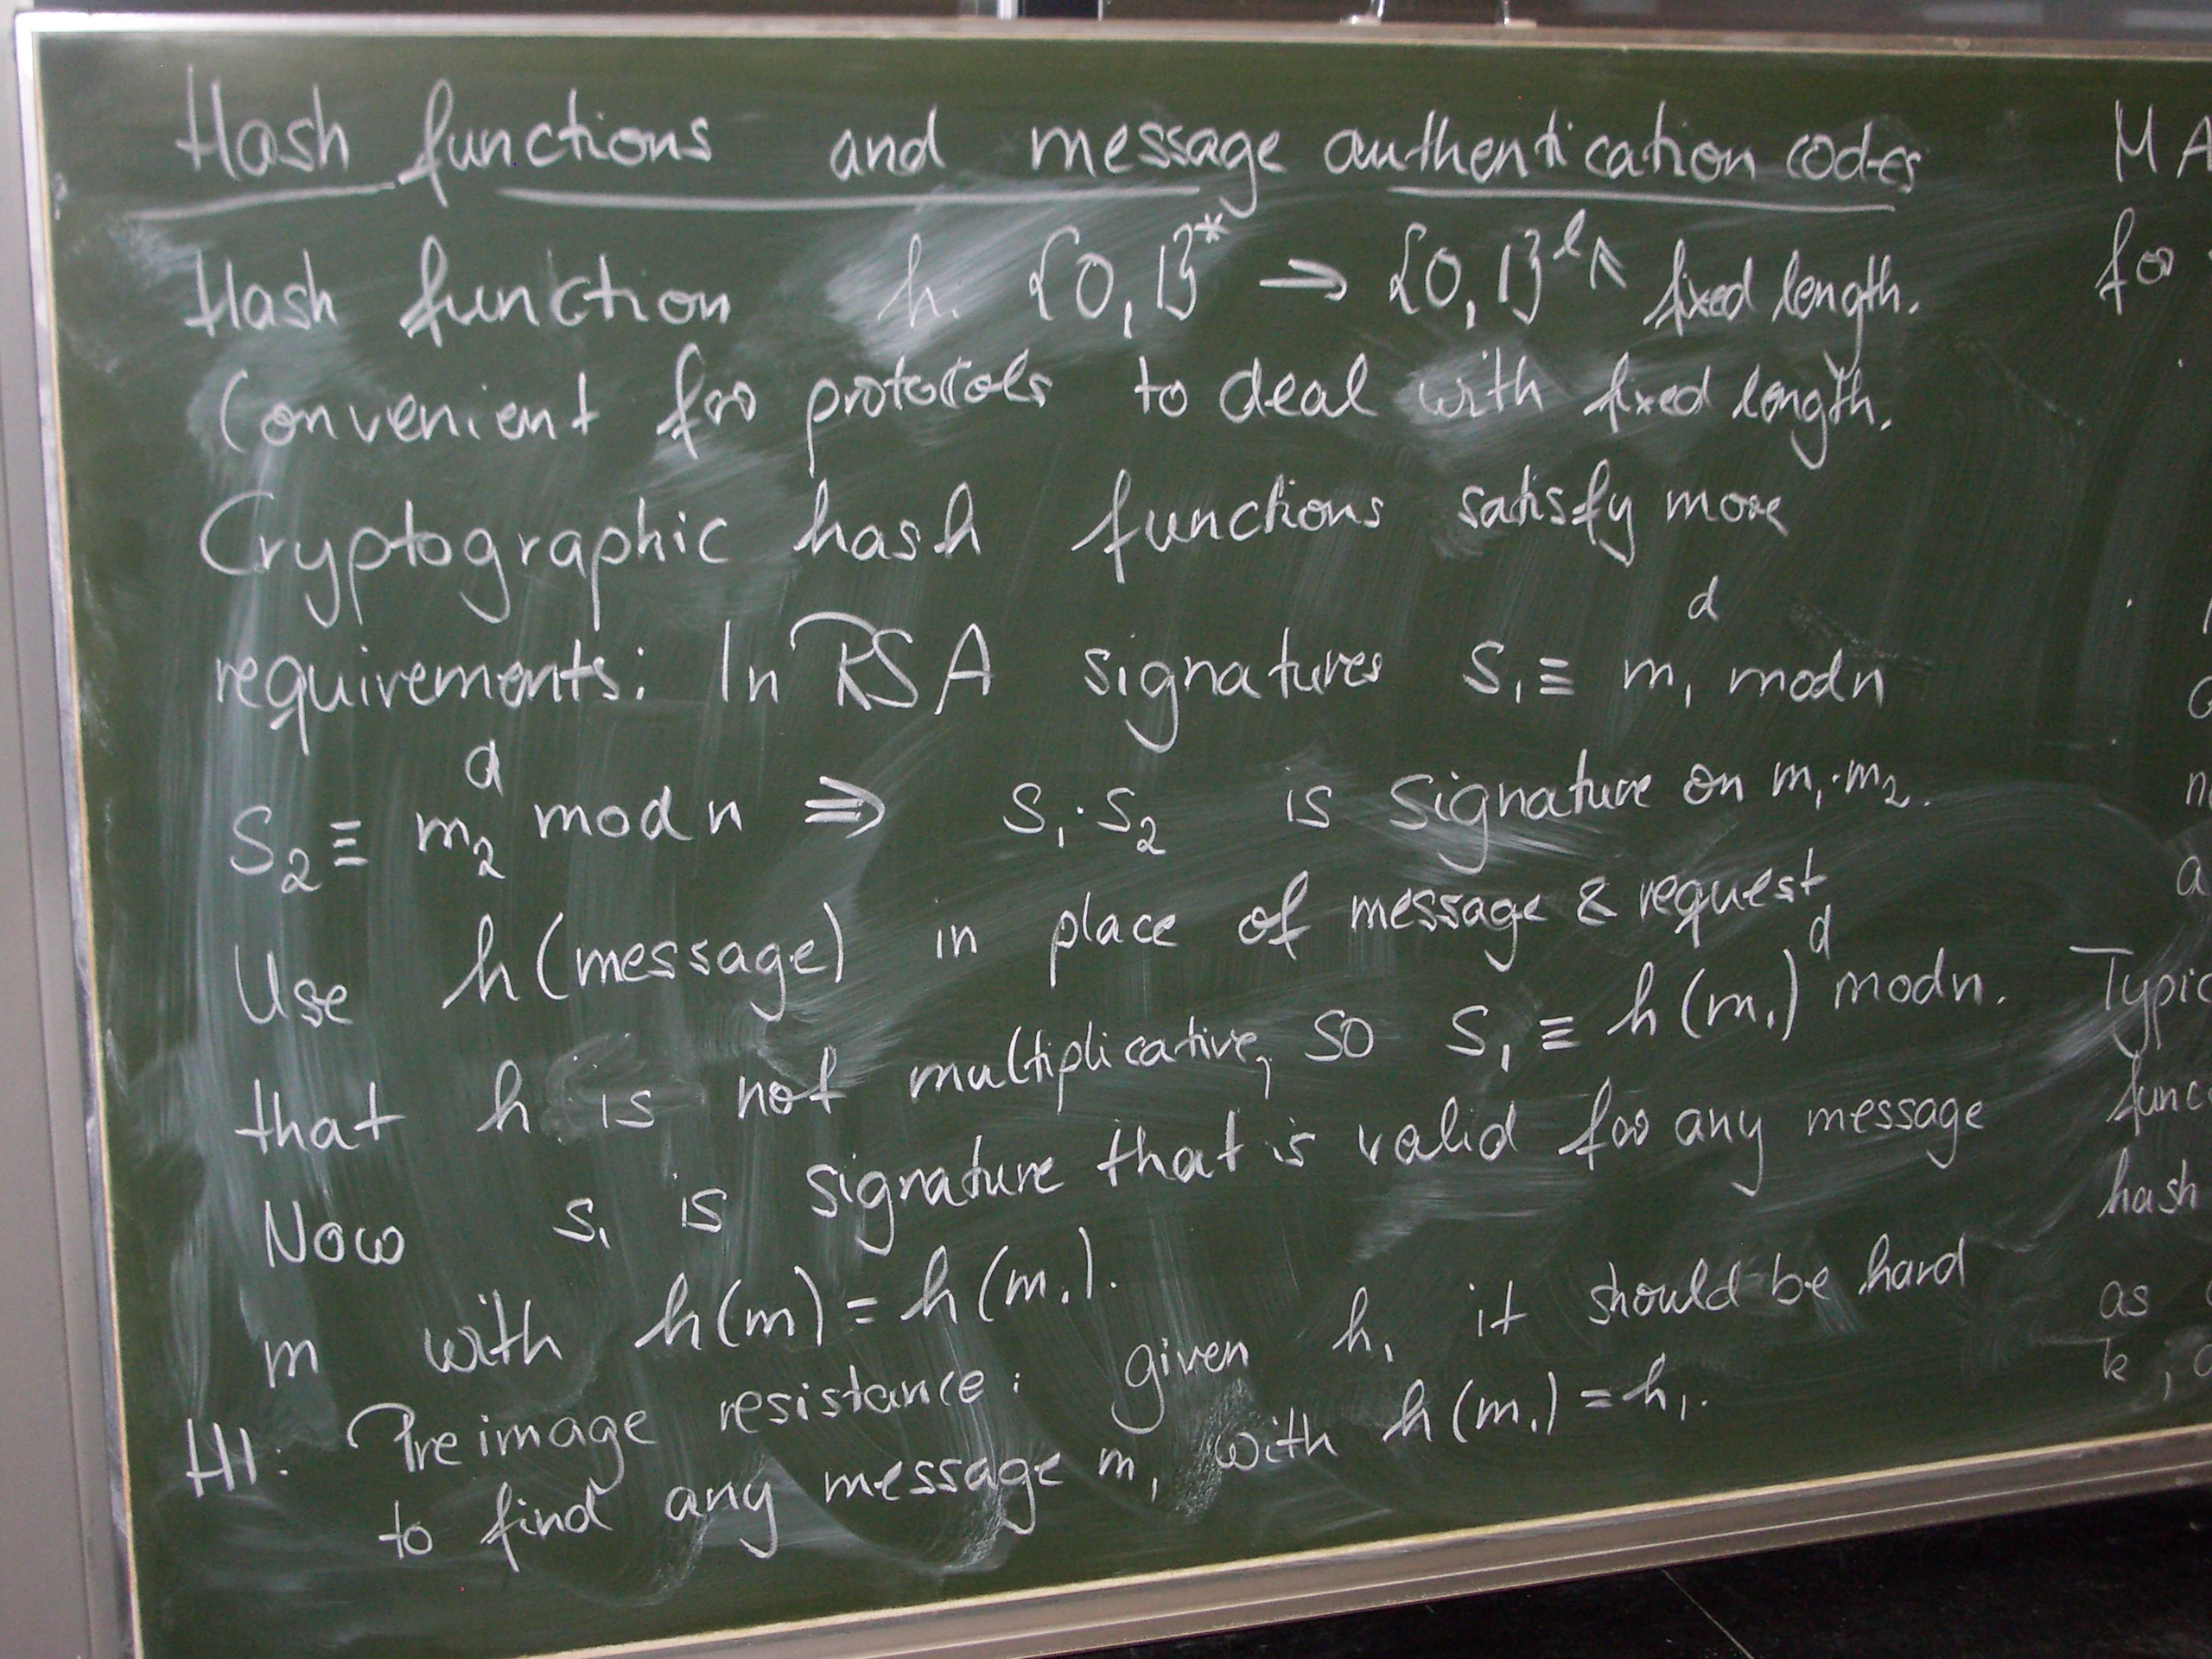 Hash functions and message authentication codes
Hash function h: {0,1}* → {0,1}^ℓ ↖ fixed length.
Convenient for protocols to deal with fixed length.
Cryptographic hash functions satisfy more
requirements: In RSA signatures S₁ ≡ m₁^d mod n
S₂ ≡ m₂^d mod n ⇒ S₁·S₂ is signature on m₁·m₂.
Use h(message) in place of message & request
that h is not multiplicative, so S₁ ≡ h(m₁)^d mod n.
Now S₁ is signature that is valid for any message
m with h(m) = h(m₁).
H1: Preimage resistance: given h₁ it should be hard
to find any message m₁ with h(m₁) = h₁.
MA
for
Typic
func
hash
as
k,